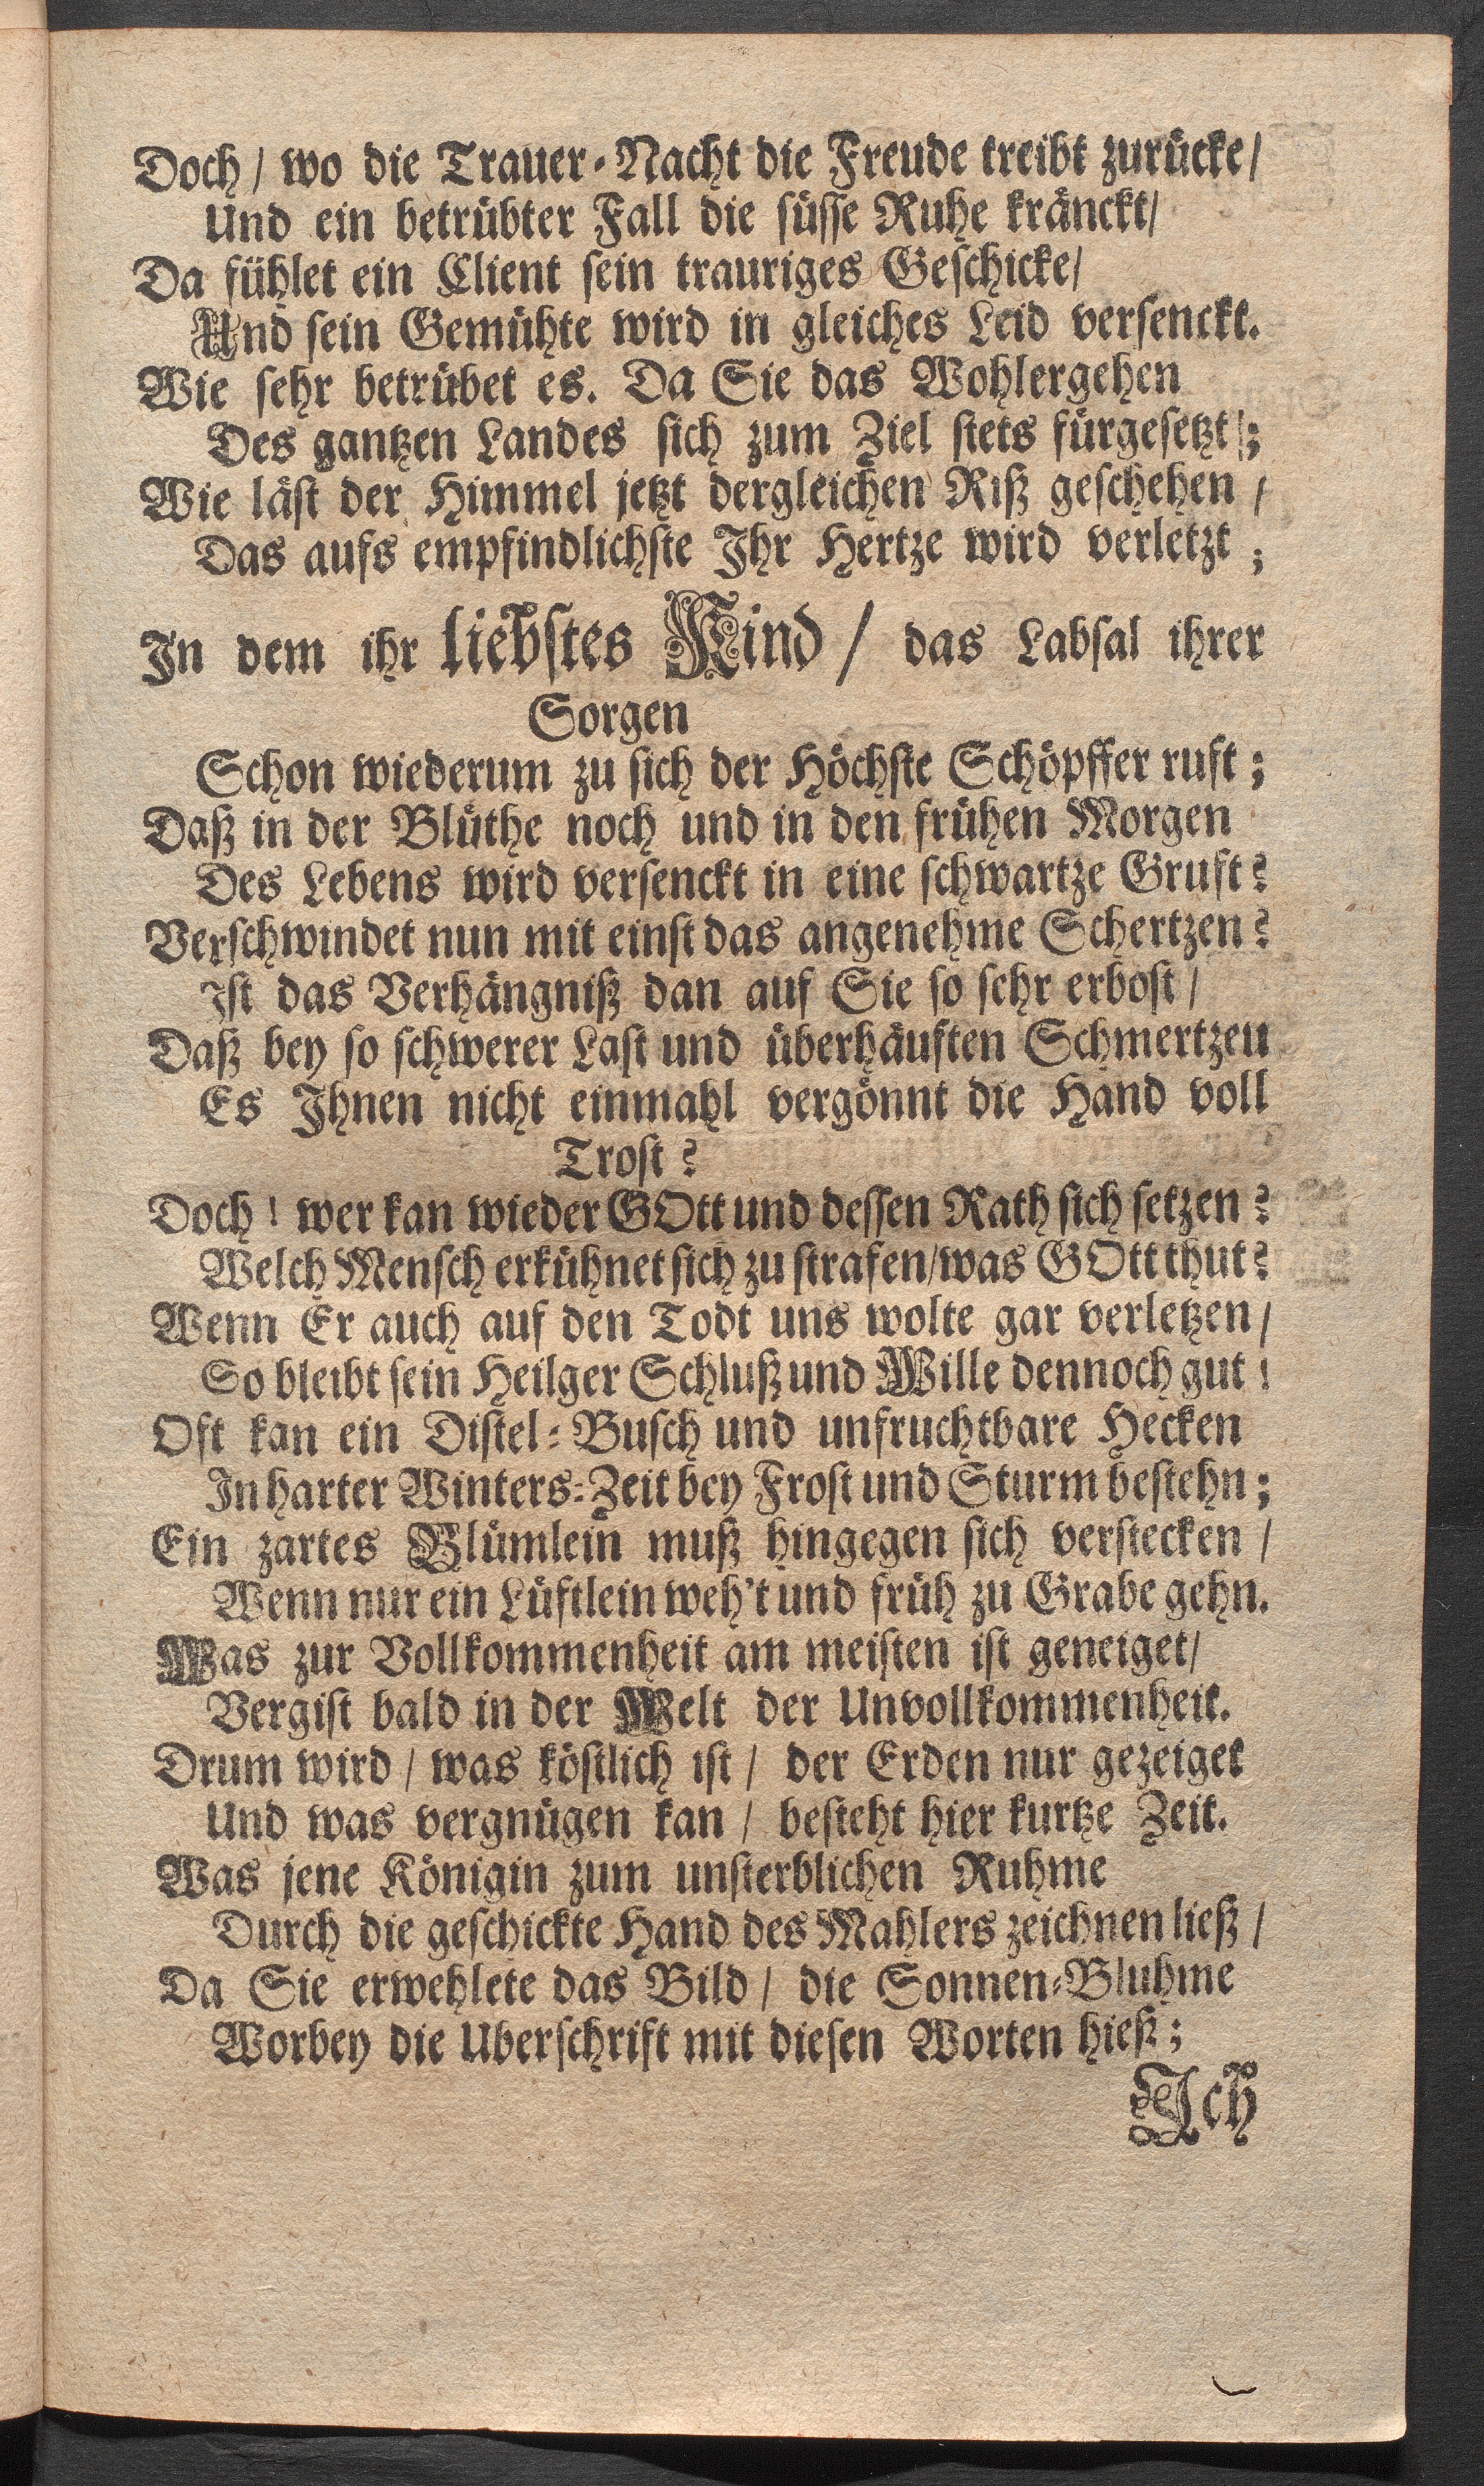 Doch / wo die Trauer-Nacht die Freude treibt zurücke /
Und ein betrübter Fall die süsse Ruhe kränckt /
Da fühlet ein Client sein trauriges Geschicke /
Und sein Gemühte wird in gleiches Leid versenckt.
Wie sehr betrübet es. Da Sie das Wohlergehen
Des gantzen Landes sich zum Ziel stets fürgesetzt ;
Wie läst der Himmel jetzt dergleichen Riß geschehen /
Das aufs empfindlichste Ihr Hertze wird verletzt ;
In dem ihr liebstes Kind / das Labsal ihrer
Sorgen
Schon wiederum zu sich der Höchste Schöpffer ruft ;
Daß in der Blüthe noch und in den frühen Morgen
Des Lebens wird versenckt in eine schwartze Gruft ?
Verschwindet nun mit einst das angenehme Schertzen ?
Ist das Verhängniß dan auf Sie so sehr erbost /
Daß bey so schwerer Last und überhäuften Schmertzen
Es Ihnen nicht einmahl vergönnt die Hand voll
Trost ?
Doch ! wer kan wieder GOtt und dessen Rath sich setzen ?
Welch Mensch erkühnet sich zu strafen / was GOtt thut ?
Wenn Er auch auf den Todt uns wolte gar verletzen /
So bleibt sein Heilger Schluß und Wille dennoch gut !
Oft kan ein Distel-Busch und unfruchtbare Hecken
In harter Winters-Zeit bey Frost und Sturm bestehn ;
Ein zartes Blümlein muß hingegen sich verstecken /
Wenn nur ein Lüftlein weh't und früh zu Grabe gehn.
Was zur Vollkommenheit am meisten ist geneiget /
Vergist bald in der Welt der Unvollkommenheit.
Drum wird / was köstlich ist / der Erden nur gezeiget
Und was vergnügen kan / besteht hier kurtze Zeit.
Was jene Königin zum unsterblichen Ruhme
Durch die geschickte Hand des Mahlers zeichnen ließ /
Da Sie erwehlete das Bild / die Sonnen-Bluhme
Worbey die Uberschrift mit diesen Worten hieß ;
Ich